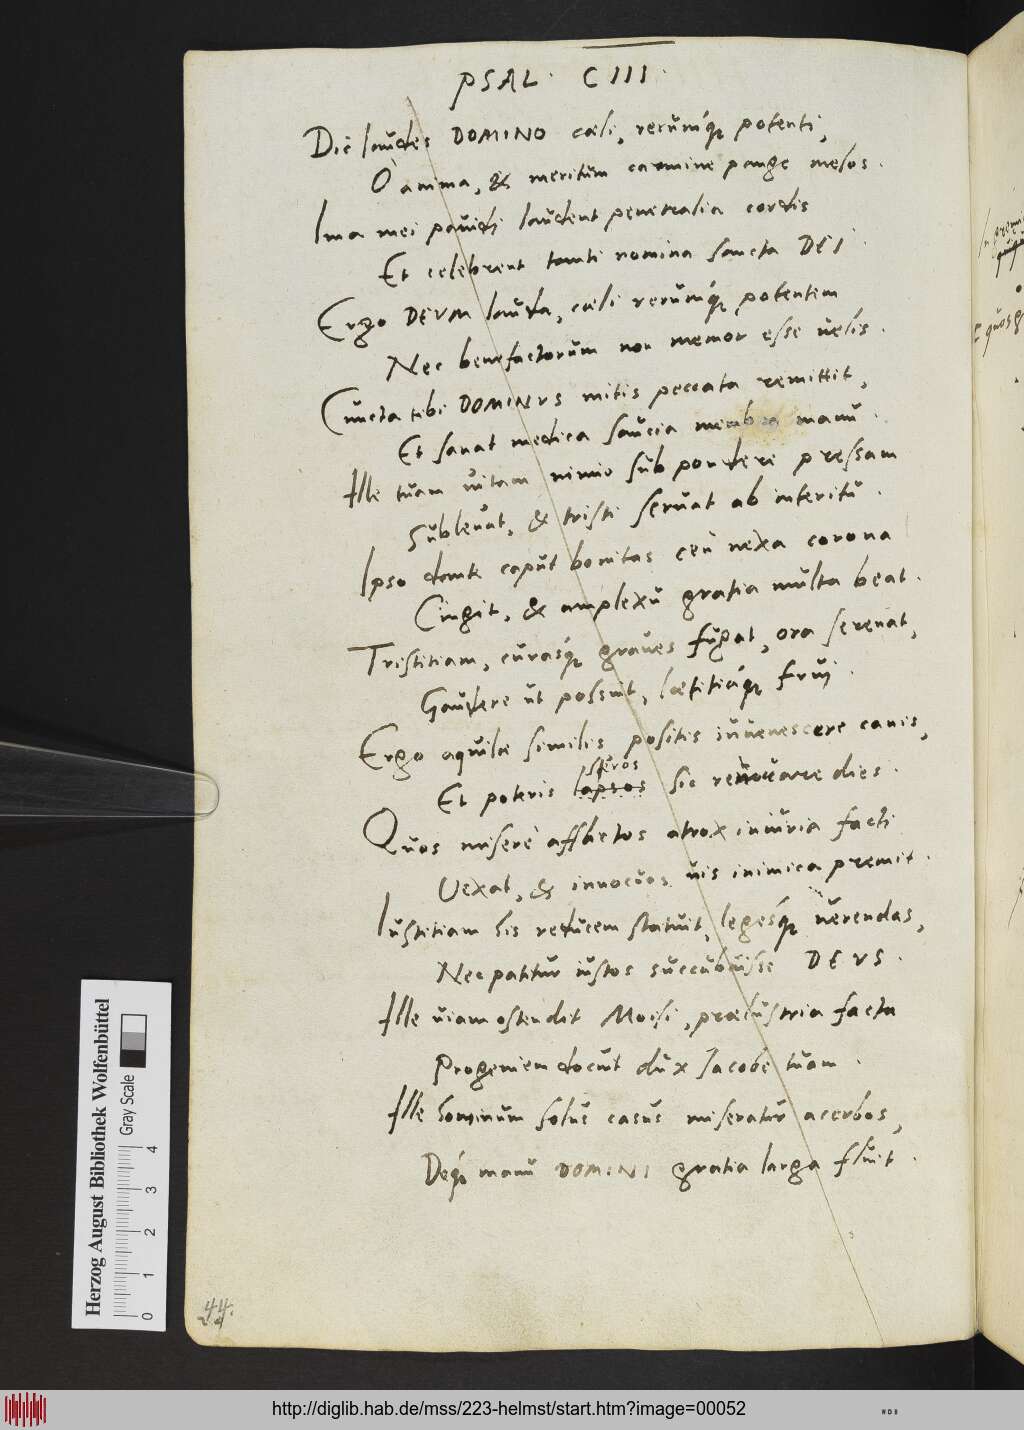 PSAL. CIII.
Dic laudes DOMINO cæli, rerumq́ue potenti,
O anima, & meritum carmine pange melos.
Ima mei pauidi laudent penetralia cordis
Et celebrent tanti nomina sancta DEI.
Ergo DEVM lauda, cæli rerumq́ue potentem
Nec benefactorum non memor esse uelis.
Cuncta tibi DOMINVS mitis peccata remittit,
Et sanat medica saucia membra manu.
Ille tuam uitam nimio sub pondere pressam
Subleuat, & tristi seruat ab interitu.
Ipso dante caput bonitas ceu nexa corona
Cingit, & amplexu gratia multa beat.
Tristitiam, curasq́ue graues fugat, ora serenat,
Gaudere ut possint, lætitiaq́ue frui.
Ergo aquilæ similis positis iuuenescere canis,
steros
Et poteris lapsos sic renouare dies.
Quos miserè afflictos atrox iniuria facti
Vexat, & innocuos uis inimica premit.
Iustitiam his reducem statuit, legesq́ue uerendas,
Nec patitur iustos succubuisse DEVS.
Ille uiam ostendit Moisi, præclustria facta
Progeniem docuit dux Iacobe tuam.
Ille hominum solus casus miseratur acerbos,
Deq́ue manu DOMINI gratia larga fluit.
44.
Herzog August Bibliothek Wolfenbüttel
Gray Scale
0 1 2 3 4
http://diglib.hab.de/mss/223-helmst/start.htm?image=00052